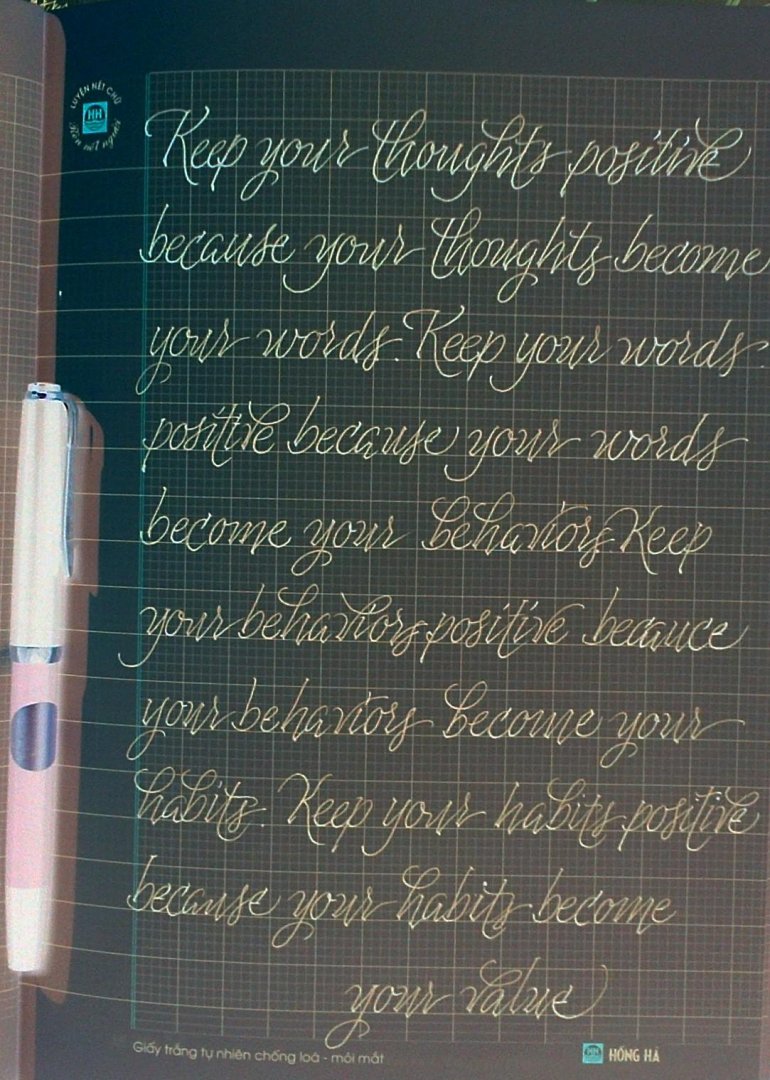 LUYỆN NÉT CHỮ
HH
Rèn nết người
Keep your thoughts positive
because your thoughts become
your words. Keep your words.
positive because your words
become your behaviors. Keep
your behaviors positive becauce
your behaviors become your
habits. Keep your habits positive
because your habits become
your value
Giấy trắng tự nhiên chống loá - mỏi mắt
HH HỒNG HÀ